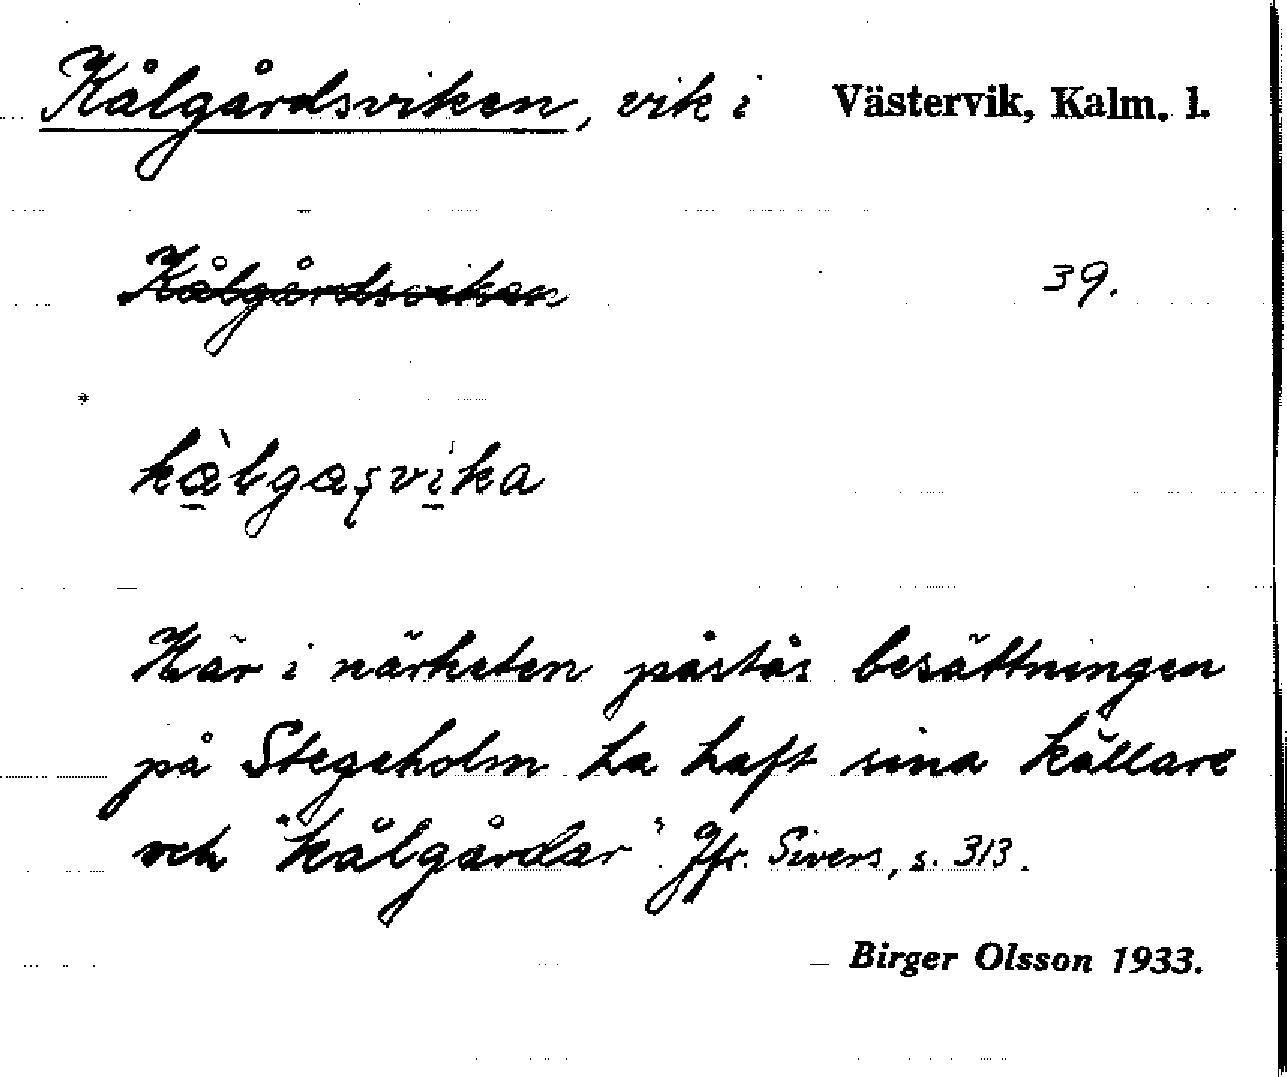 Kålgårdsviken, vik i Västervik, Kalm. l.
Kålgårdsviken 39.
Här i närheten påstås besättningen
på Stegeholm ha haft sina källare
och "kålgårdar". Jfr. Sivers, s. 313.
Birger Olsson 1933.